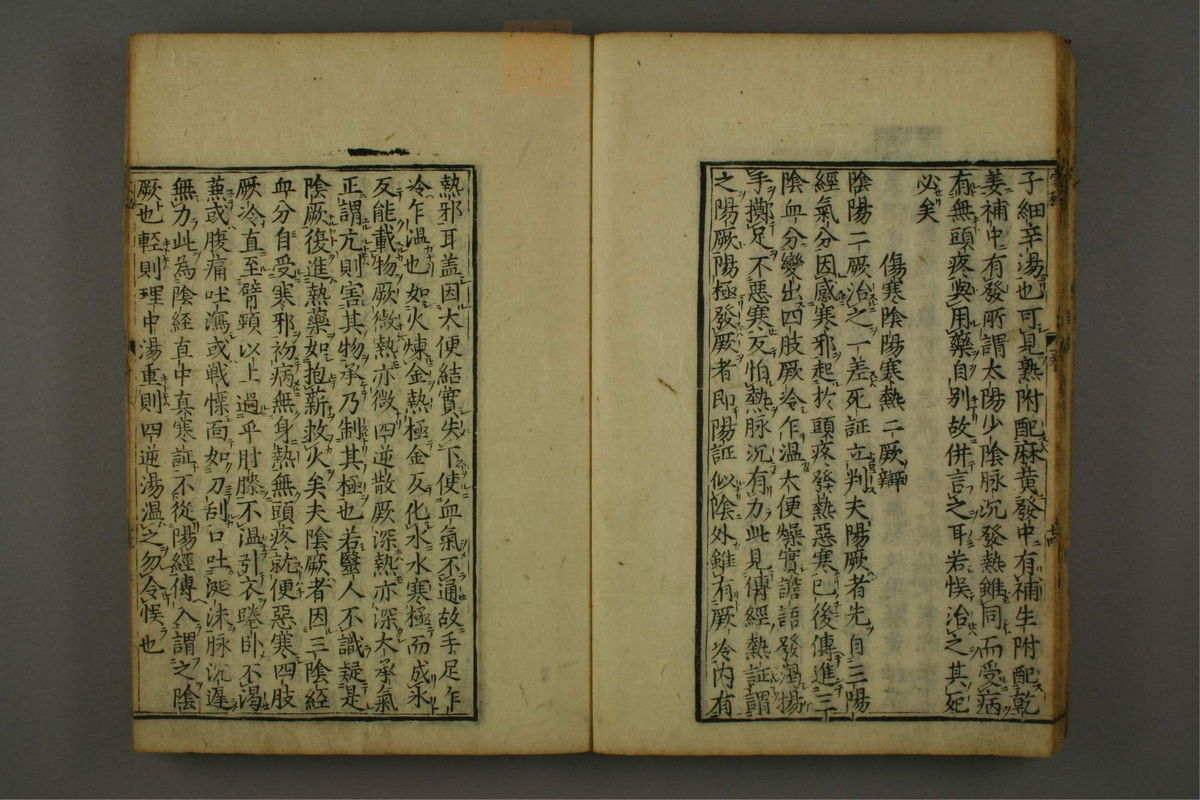 子細辛湯也可見熟附配麻黄發中有補生附配乾
姜補中有發所謂太陽少陰脉沉發熱雖同而受病
有無頭疼與用藥自別故併言之耳若悞治之其死
必矣
傷寒陰陽寒熱二厥辯
陰陽二厥治之一差死証立判夫陽厥者先自三陽
經氣分因感寒邪起於頭疼發熱惡寒已後傳進三
陰血分變出四肢厥冷乍温大便燥實譫語發渴揚
手擲足不惡寒反怕熱脉沉有力此見傳經熱証謂
之陽厥陽極發厥者即陽証似陰外雖有厥冷内有
熱邪耳盖因大便結實失下使血氣不通故手足乍
冷乍温也如火煉金熱極金反化水水寒極而成氷
反能載物厥微熱亦微四逆散厥深熱亦深大承氣
正謂亢則害其物承乃制其極也若醫人不識疑是
陰厥復進熱藥如抱薪救火矣夫陰厥者因三陰經
血分自受寒邪初病無身熱無頭疼就便惡寒四肢
厥冷直至臂頸以上過乎肘膝不温引衣踡卧不渴
兼或腹痛吐瀉或戰慄面如刀刮口吐涎沫脉沉遲
無力此為陰経直中真寒証不從陽經傳入謂之陰
厥也輕則理中湯重則四逆湯温之勿令悞也